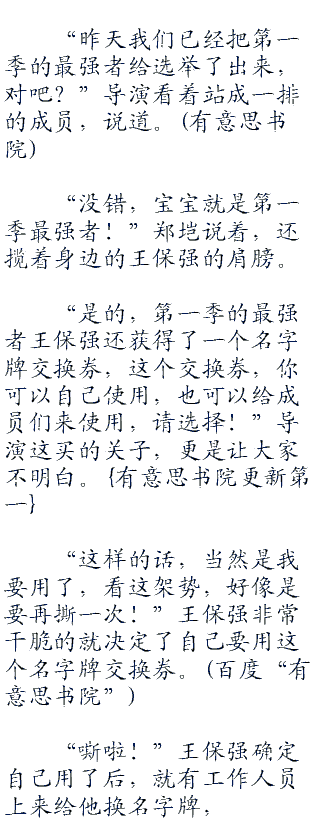 “昨天我们已经把第一
季的最强者给选举了出来，
对吧？”导演看着站成一排
的成员，说道。(有意思书
院)
“没错，宝宝就是第一
季最强者！”郑垲说着，还
揽着身边的王保强的肩膀。
“是的，第一季的最强
者王保强还获得了一个名字
牌交换券，这个交换券，你
可以自己使用，也可以给成
员们来使用，请选择！”导
演这买的关子，更是让大家
不明白。{有意思书院更新第
一}
“这样的话，当然是我
要用了，看这架势，好像是
要再撕一次！”王保强非常
干脆的就决定了自己要用这
个名字牌交换券。(百度“有
意思书院”)
“嘶啦！”王保强确定
自己用了后，就有工作人员
上来给他换名字牌，